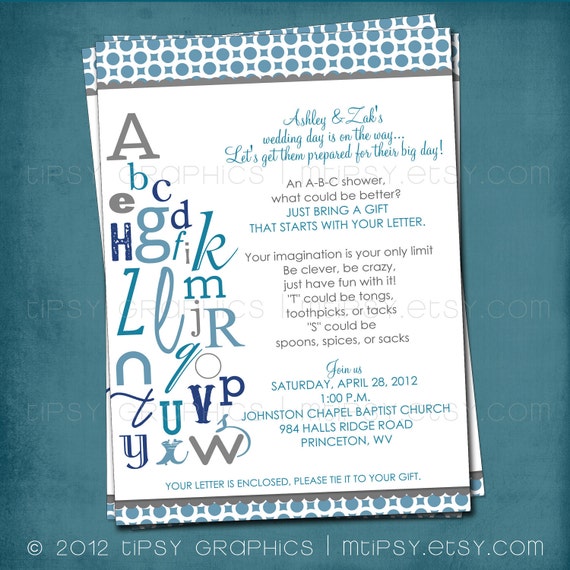 Ashley & Zak's
wedding day is on the way...
Let's get them prepared for their big day!
An A-B-C shower,
what could be better?
JUST BRING A GIFT
THAT STARTS WITH YOUR LETTER.
Your imagination is your only limit
Be clever, be crazy,
just have fun with it!
"T" could be tongs,
toothpicks, or tacks
"S" could be
spoons, spices, or sacks
Join us
SATURDAY, APRIL 28, 2012
1:00 P.M.
JOHNSTON CHAPEL BAPTIST CHURCH
984 HALLS RIDGE ROAD
PRINCETON, WV
YOUR LETTER IS ENCLOSED, PLEASE TIE IT TO YOUR GIFT.
A
b c
e g d
H f i k
Z l m
j R
n q o
t U V p
y x s w
tiPSY GRAPHiCS | mtiPSY.etsy.com
tiPSY GRAPHiCS | mtiPSY.etsy.com
© 2012 tiPSY GRAPHiCS | mtiPSY.etsy.com